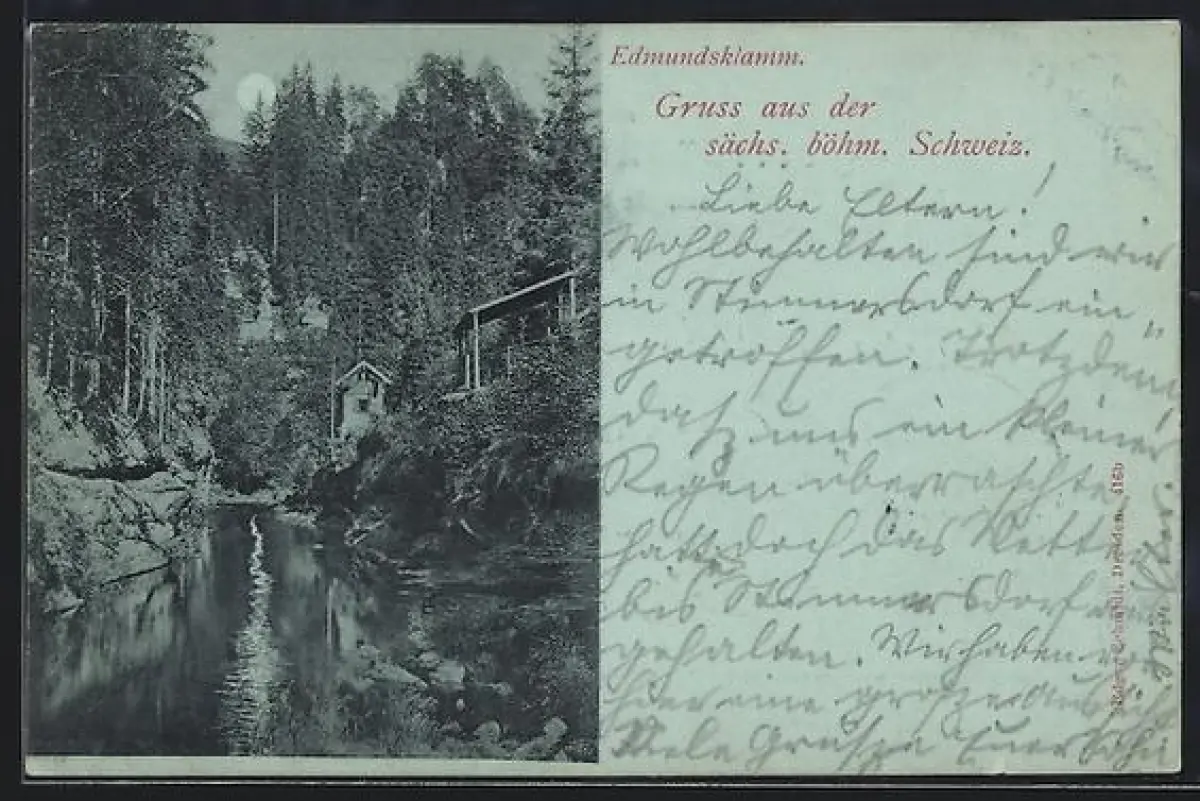 Edmundsklamm.
Gruss aus der
sächs. böhm. Schweiz.
Liebe Eltern!
Wohlbehalten sind wir
in Stimmersdorf ein„
getroffen. Trotzdem
dasz uns ein kleiner
Regen überraschte
hatt doch das Wetter
bis Stimmersdorf
gehalten. Wir haben von
hier eine grosze Aussicht
Viele Grüsze Euer Sohn
Dresden. 4160